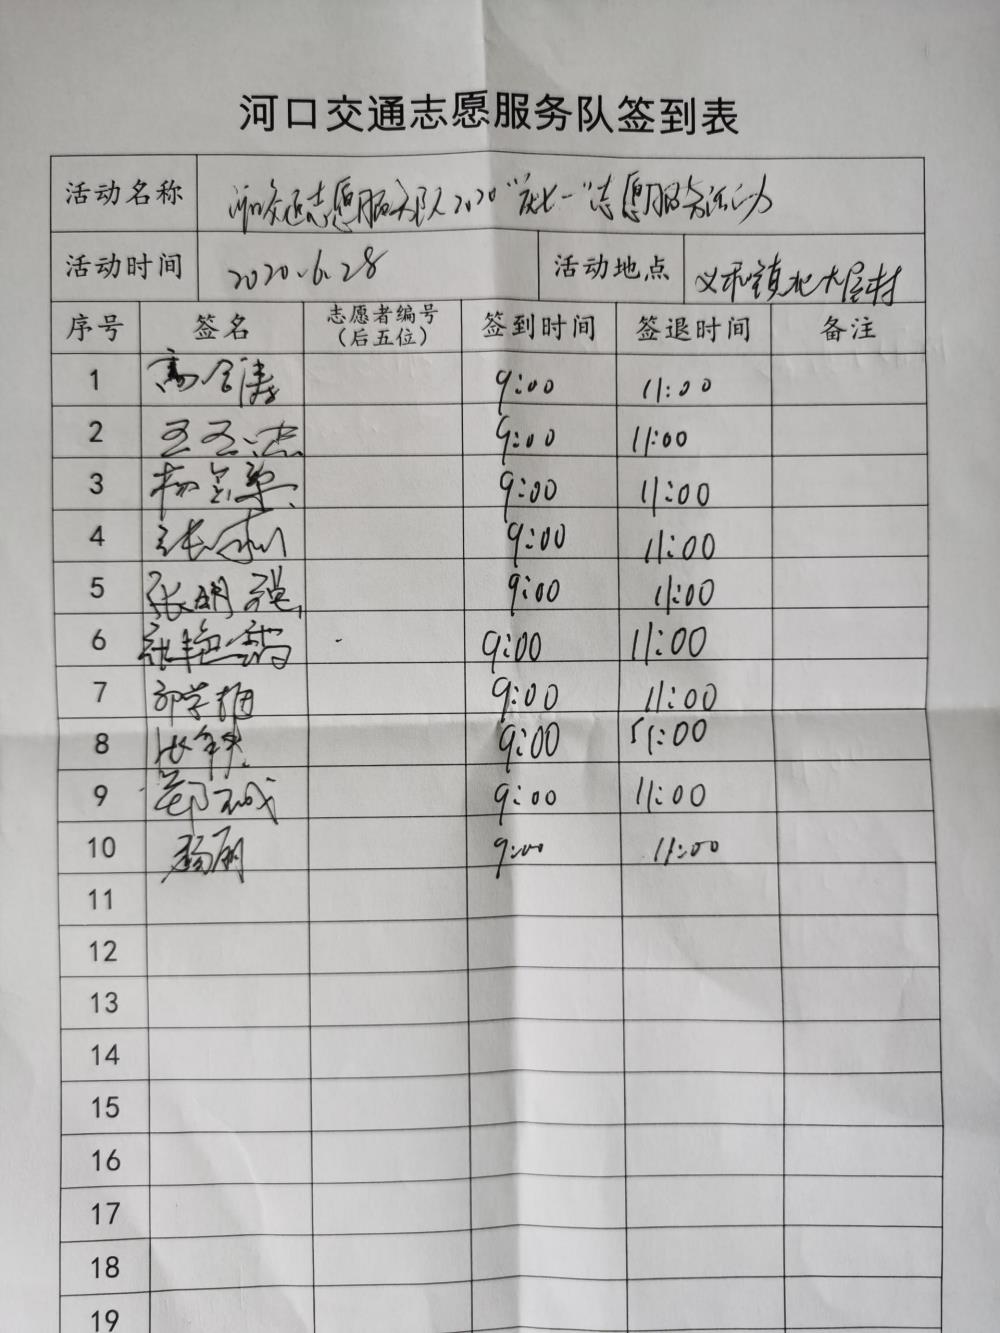 河口交通志愿服务队签到表
活动名称 河口交通志愿服务队2020"庆七一"志愿服务活动
活动时间 2020.6.28 活动地点 义和镇北大屋村
序号 签名 志愿者编号(后五位) 签到时间 签退时间 备注
1 高 9:00 11:00
2 王玉杰 9:00 11:00
3 杨 9:00 11:00
4 张 9:00 11:00
5 张明强 9:00 11:00
6 张艳霞 9:00 11:00
7 郭学梅 9:00 11:00
8 9:00 11:00
9 郑 9:00 11:00
10 杨丽 9:00 11:00
11
12
13
14
15
16
17
18
19